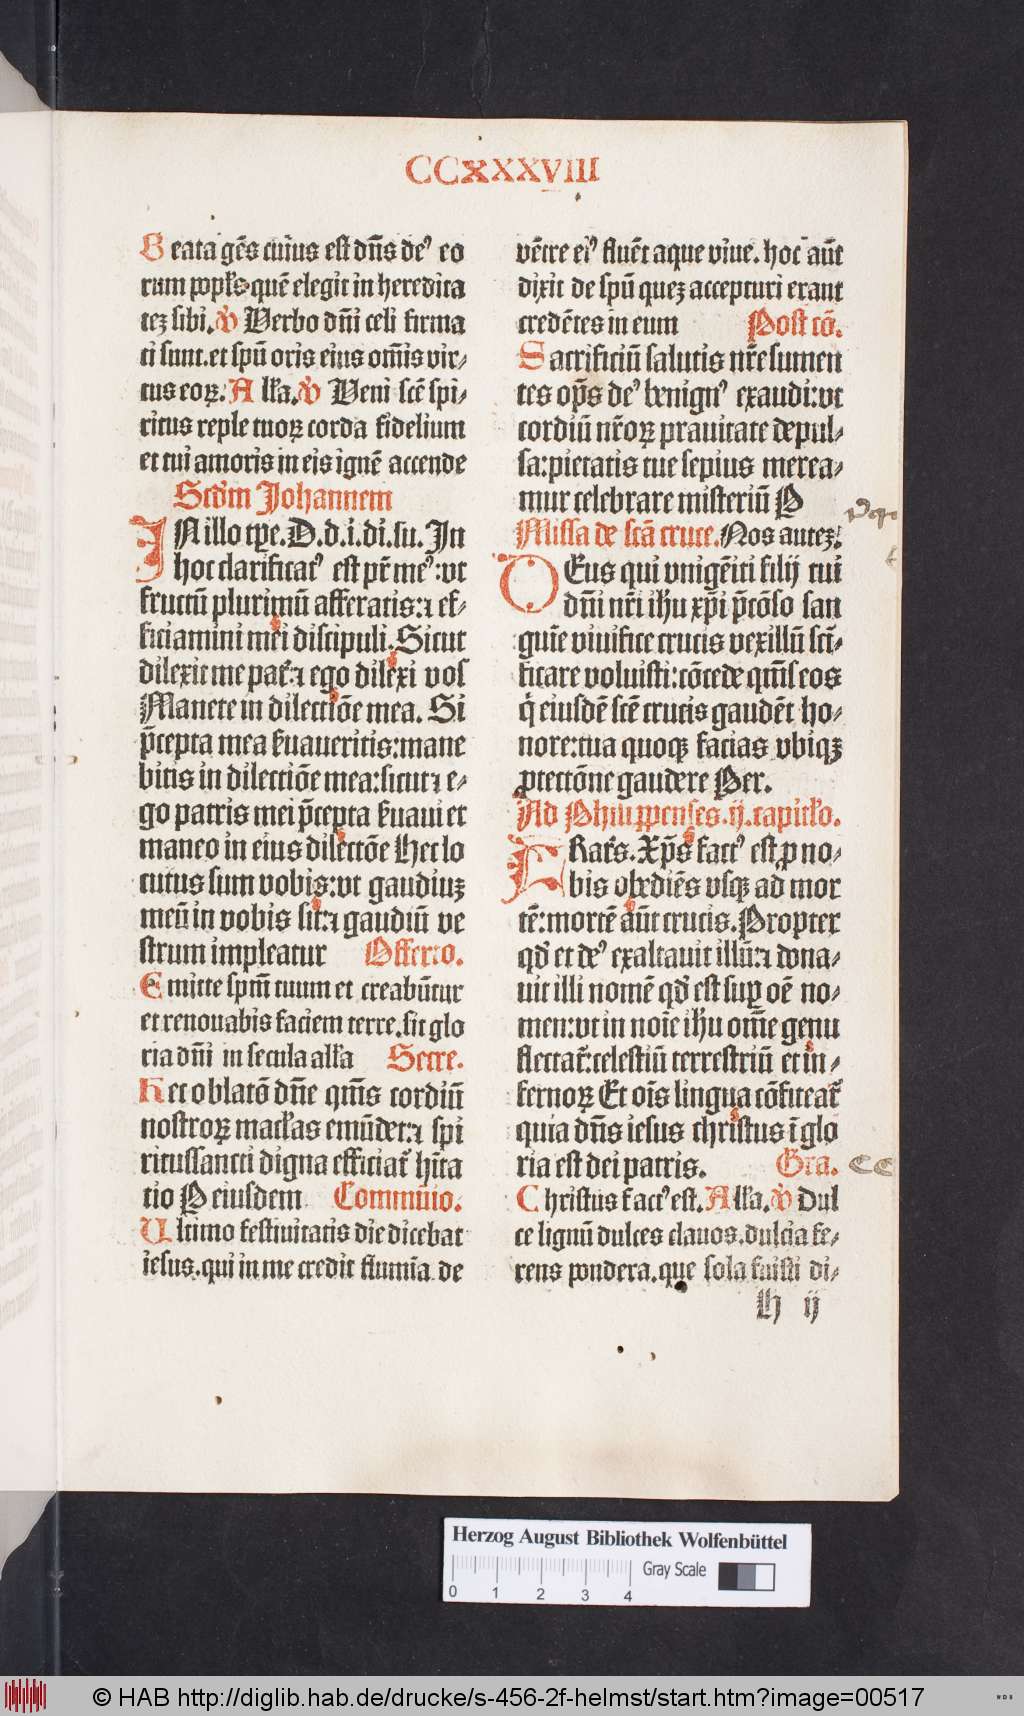 CCXXXVIII
Beata gēs cuiꝰ est dn̄s deꝰ eo
rum popl̓s quē elegit in heredita
tez sibi. ℣ Verbo dn̄i celi firma
ti sunt. et spū oris eius om̄is vir⸗
tus eoꝝ. Al̓la. ℣ Veni scē spi⸗
ritus reple tuoꝝ corda fidelium
et tui amoris in eis ignē accende
Scd̓m Johannem
IN illo tp̄e. D. d. i. di. su. In
hoc clarificatꝰ est pr̄ meꝰ: vt
fructū plurimū afferatis: ⁊ ef⸗
ficiamini mei discipuli. Sicut
dilexit me pat̓: ⁊ ego dilexi vos
Manete in dilectiōe mea. Si
p̄cepta mea ẜuaueritis: mane
bitis in dilectiōe mea: sicut ⁊ e⸗
go patris mei p̄cepta ẜuaui et
maneo in eius dilectōe Hec lo
cutus sum vobis: vt gaudiuz
meū in vobis sit: ⁊ gaudiū ve
strum impleatur Offerto.
Emitte spm̄ tuum et creabūtur
et renouabis faciem terre. sit glo
ria dn̄i in secula al̓la Secre.
Hec oblatō dn̄e qm̄s cordiū
nostroꝝ macl̓as emūdet: ⁊ spi
ritussancti digna efficiat̓ hīta
tio P eiusdem Commūio.
Ultimo festiuitatis die dicebat
iesus. qui in me credit flumīa de
vētre eiꝰ fluēt aque viue. hoc aūt
dixit de spū quez accepturi erant
credētes in eum Post cō.
Sacrificiū salutis nr̄e sumen
tes op̄s deꝰ benignꝰ exaudi: vt
cordiū nr̄oꝝ prauitate depul⸗
sa: pietatis tue sepius merea⸗
mur celebrare misteriū P
Missa de scā cruce. Nos autez.
DEus qui vnigēiti filij tui
dn̄i nr̄i ih̄u xp̄i p̄cōso san
guīe viuifice crucis vexillū scī⸗
ficare voluisti: cōcede qm̄s eos
q̓ eiusdē scē crucis gaudēt ho⸗
nore: tua quoqꝫ facias vbiqꝫ
ꝓtectōne gaudere Per.
Ad Philippenses. ij. capitl̓o.
FRat̓s. Xp̄s factꝰ est ꝓ no⸗
bis obediēs vsqꝫ ad mor
tē: mortē aūt crucis. Propter
qd̓ et deꝰ exaltauit illū: ⁊ dona⸗
uit illi nomē qd̓ est suꝑ oē no⸗
men: vt in noīe ih̄u om̄e genu
flectat̓: celestiū terrestriū et in⸗
fernoꝝ Et oīs lingua cōfiteat̓
quia dn̄s iesus christus ī glo
ria est dei patris. Gra.
Christus factꝰ est. Al̓la. ℣ Dul
ce lignū dulces clauos. dulcia fe⸗
rens pondera. que sola fuisti di⸗
H ij
Herzog August Bibliothek Wolfenbüttel
Gray Scale
0 1 2 3 4
© HAB http://diglib.hab.de/drucke/s-456-2f-helmst/start.htm?image=00517